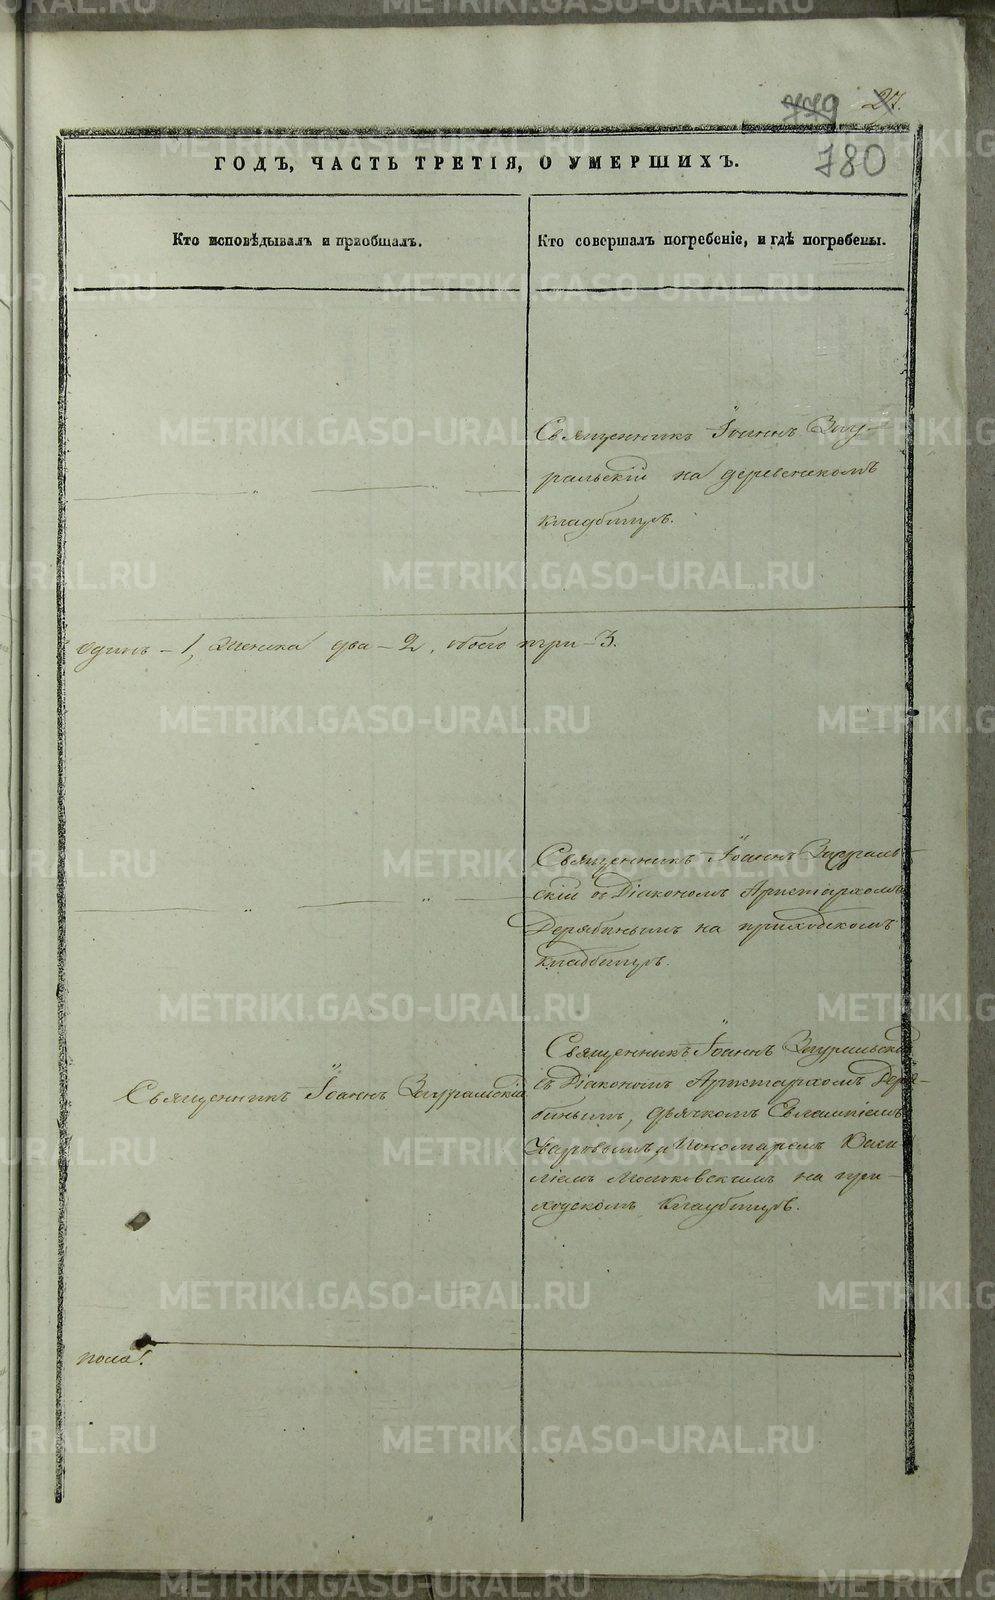 779 27.
780
ГОДЪ, ЧАСТЬ ТРЕТІЯ, О УМЕРШИХЪ.
Кто исповѣдывалъ и приобщалъ.
Кто совершалъ погребеніе, и гдѣ погребены.
Священникъ Іоаннъ Зау-
ральскій на деревенскомъ
кладбищѣ.
одинъ - 1, женска два - 2, обоего три - 3.
Священникъ Іоаннъ Заураль-
скій съ Діакономъ Аристархомъ
Дерябинымъ на приходскомъ
кладбищѣ.
Священникъ Іоаннъ Зауральскій
Священникъ Іоаннъ Зауральскій
съ Діакономъ Аристархомъ Деря-
бинымъ, дьячкомъ Евлампіемъ
Уваровымъ и Пономаремъ Васи-
ліемъ на при-
ходскомъ кладбищѣ.
пола.
METRIKI.GASO-URAL.RU